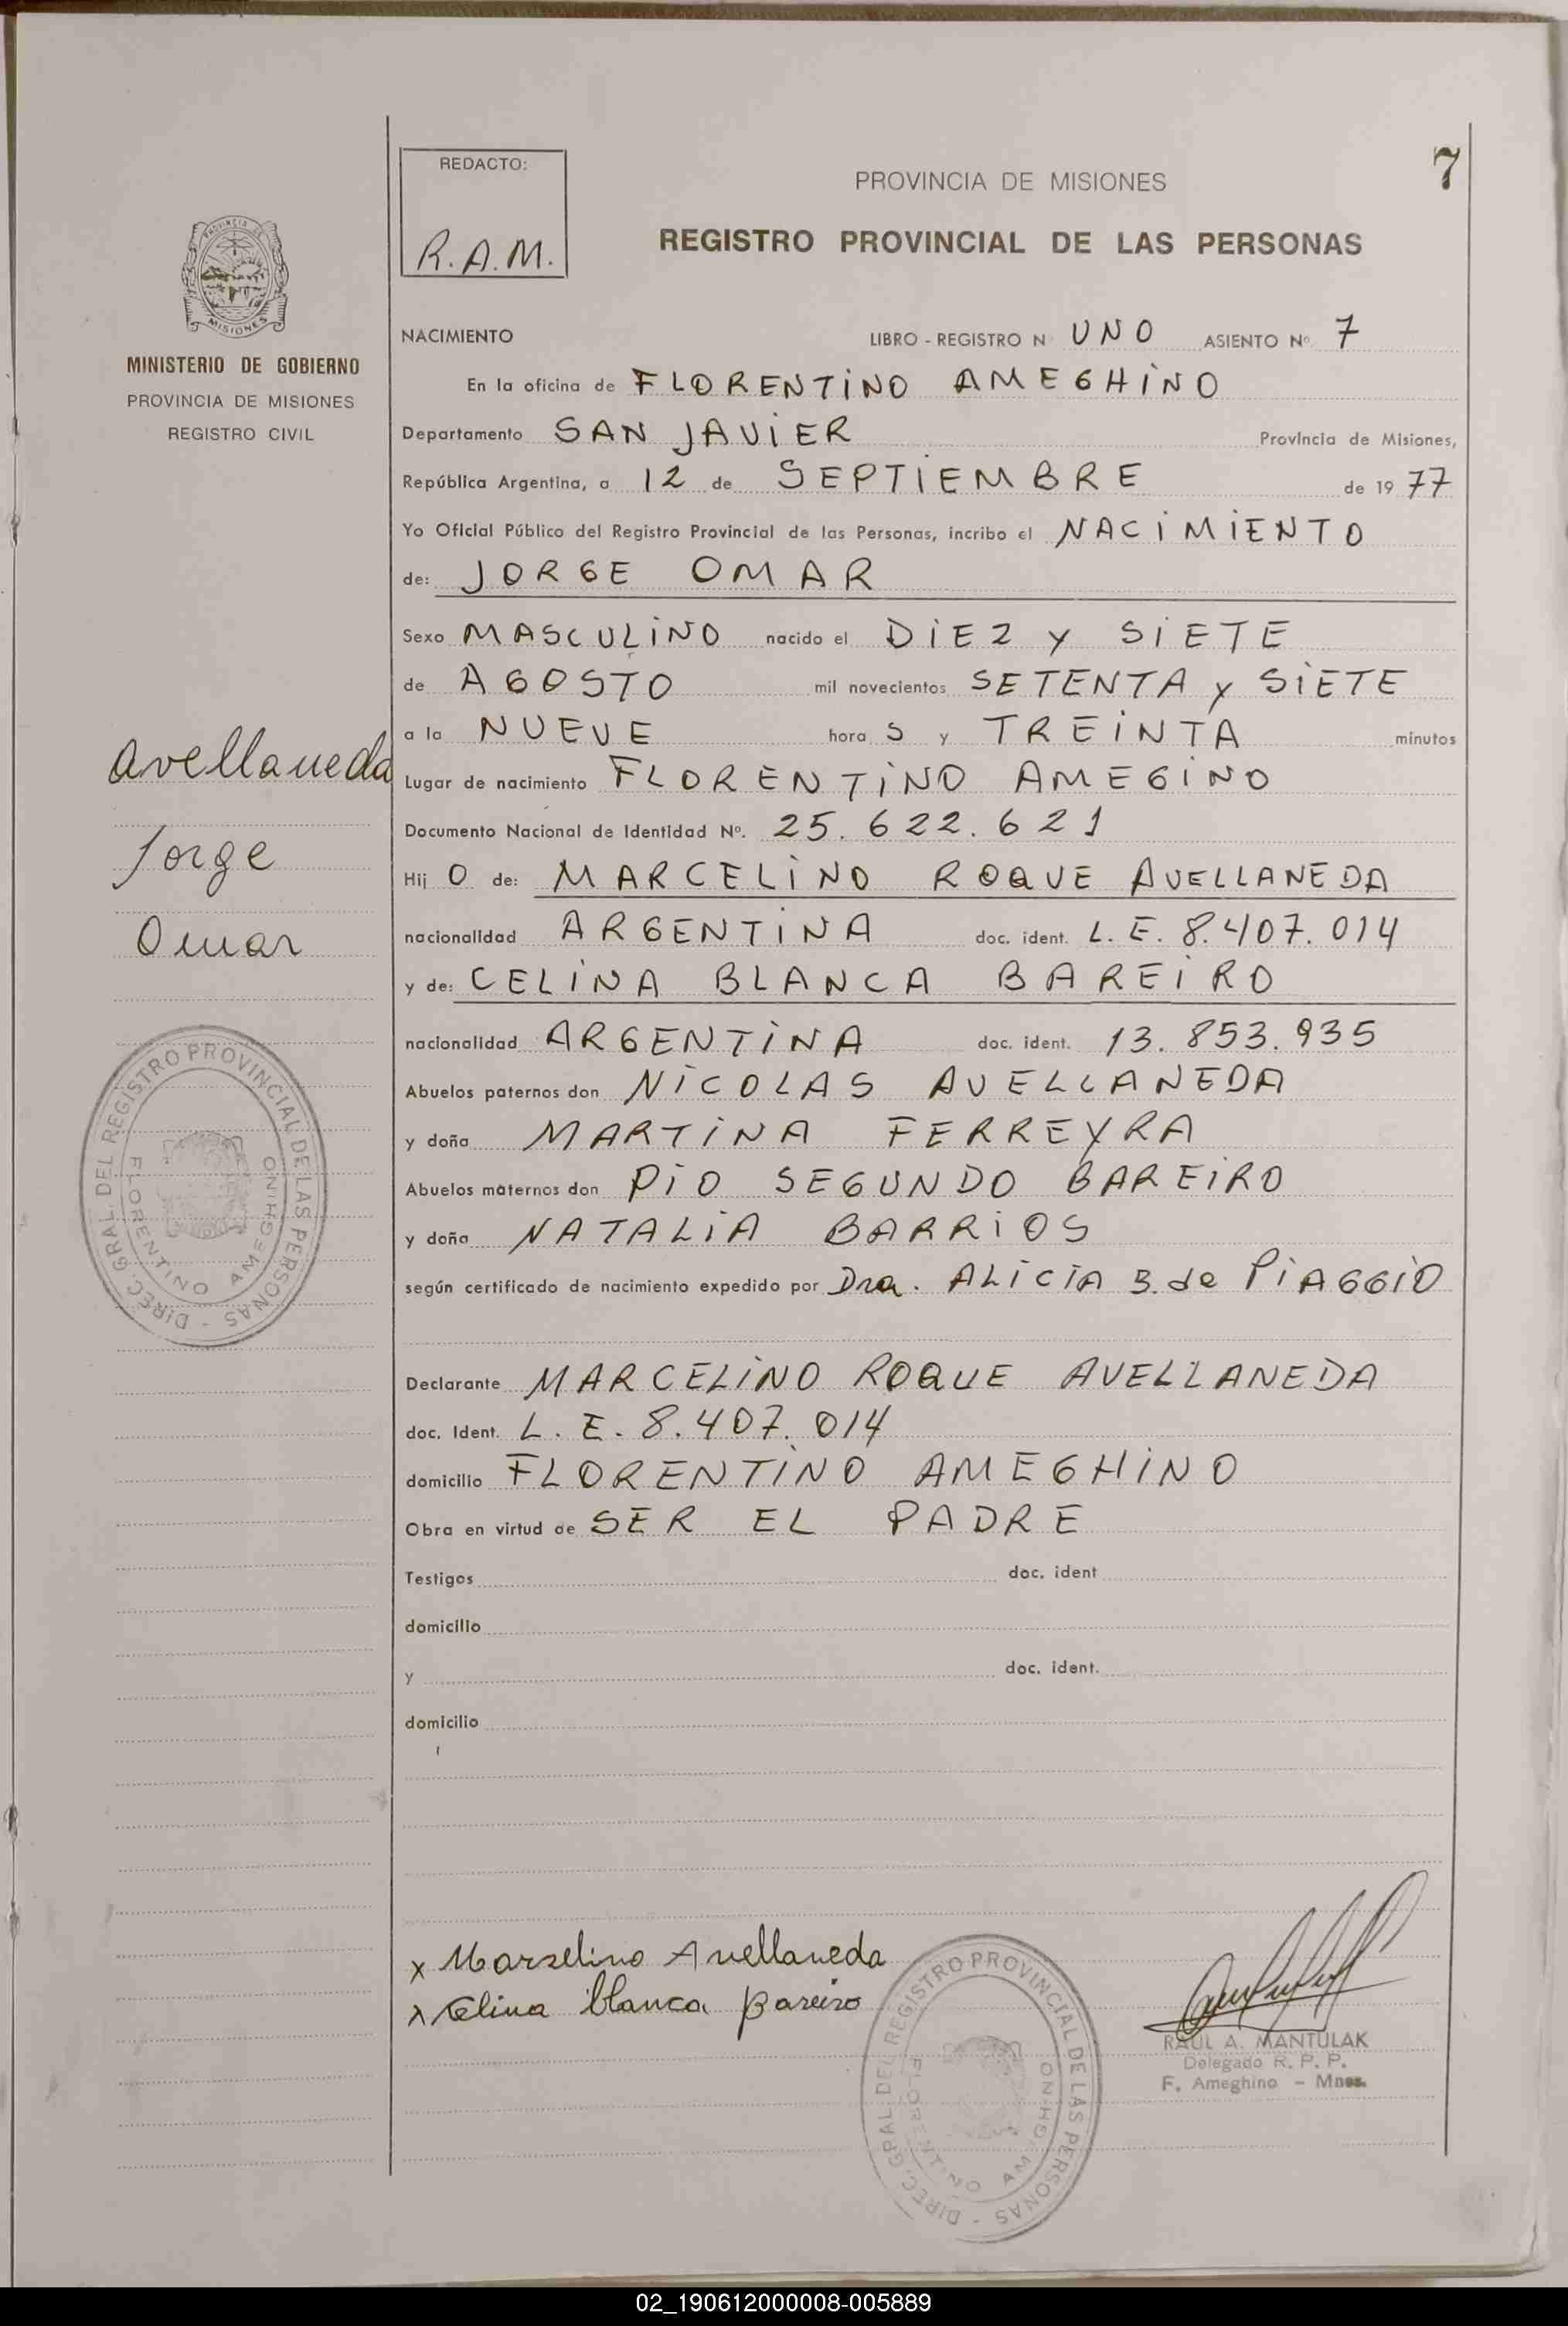 REDACTO:
R.A.M.
7
PROVINCIA DE MISIONES
REGISTRO PROVINCIAL DE LAS PERSONAS
MISIONES
MINISTERIO DE GOBIERNO
PROVINCIA DE MISIONES
REGISTRO CIVIL
NACIMIENTO LIBRO - REGISTRO N UNO ASIENTO Nº 7
En la oficina de FLORENTINO AMEGHINO
Departamento SAN JAVIER Provincia de Misiones,
República Argentina, a 12 de SEPTIEMBRE de 1977
Yo Oficial Público del Registro Provincial de las Personas, incribo el NACIMIENTO
de: JORGE OMAR
Sexo MASCULINO nacido el DIEZ y SIETE
de AGOSTO mil novecientos SETENTA y SIETE
a la NUEVE hora S y TREINTA minutos
Lugar de nacimiento FLORENTINO AMEGINO
Documento Nacional de Identidad Nº. 25.622.621
Hij O de: MARCELINO ROQUE AVELLANEDA
nacionalidad ARGENTINA doc. ident. L.E. 8.407.014
y de: CELINA BLANCA BAREIRO
nacionalidad ARGENTINA doc. ident. 13.853.935
Abuelos paternos don NICOLAS AVELLANEDA
y doña MARTINA FERREYRA
Abuelos maternos don PIO SEGUNDO BAREIRO
y doña NATALIA BARRIOS
según certificado de nacimiento expedido por Dra. ALICIA B. de PIAGGIO
Declarante MARCELINO ROQUE AVELLANEDA
doc. Ident. L.E. 8.407.014
domicilio FLORENTINO AMEGHINO
Obra en virtud de SER EL PADRE
Testigos doc. ident
domicilio
y doc. ident.
domicilio
Avellaneda
Jorge
Omar
DIREC. GRAL. DEL REGISTRO PROVINCIAL DE LAS PERSONAS -
FLORENTINO AMEGHINO
x Marzelino Avellaneda
x Celina blanca Bareiro
DIREC. GRAL. DEL REGISTRO PROVINCIAL DE LAS PERSONAS -
FLORENTINO AMEGHINO
RAUL A. MANTULAK
Delegado R. P. P.
F. Ameghino - Mnes.
02_190612000008-005889